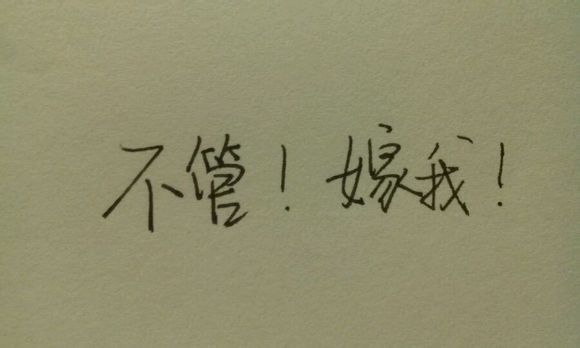 不管！嫁我！